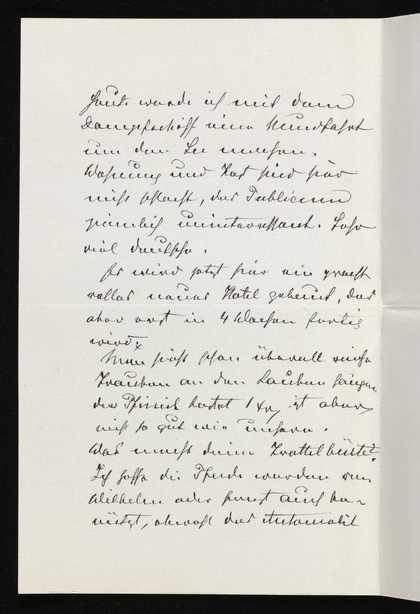 Heute werde ich mit dem
Dampfschiff eine Rundfahrt
um den See machen.
Wohnung und Kost sind hier
nicht schlecht, das Publicum
ziemlich uninteressant. Sehr
viel Deutsche.
Es wird jetzt hier ein pracht
volles neues Hotel gebaut, das
aber erst in 4 Wochen fertig
wird.
Man sieht schon überall reife
Trauben an den Lauben hängen
der Pfirsich kostet 1 ist aber
nicht so gut wie unsere.
Was macht deine Trottelbüste?
Ich hoffe die Pferde werden von
Wilhelm oder sonst auch be-
nützt, obwohl das Automobil